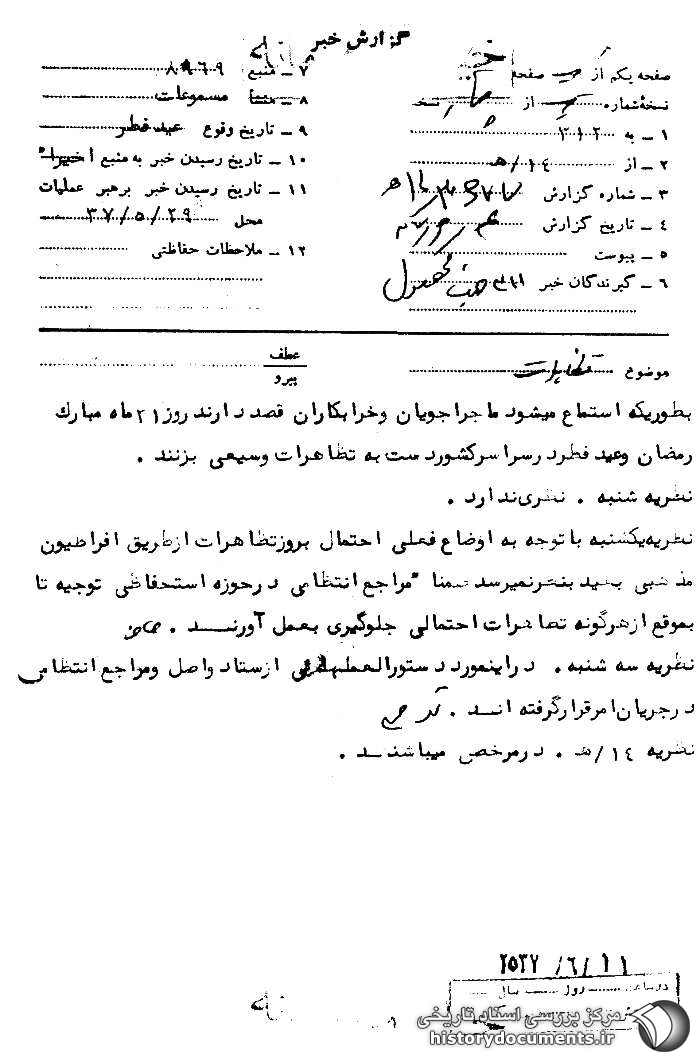 گزارش خبر
صفحه یکم از صفحه
نسخهٔ شماره از نسخه
۱ ـ به ۳۱۲
۲ ـ از ۱۴/هـ
۳ ـ شماره گزارش
۴ ـ تاریخ گزارش
۵ ـ پیوست
۶ ـ گیرندگان خبر
۷ ـ منبع ۸۹۶۹
۸ ـ منشأ مسموعات
۹ ـ تاریخ وقوع عید فطر
۱۰ ـ تاریخ رسیدن خبر به منبع اخیراً
۱۱ ـ تاریخ رسیدن خبر برهبر عملیات
محل ۳۷/۵/۲۹
۱۲ ـ ملاحظات حفاظتی
موضوع تظاهرات
عطف
پیرو
بطوریکه استماع میشود ماجراجویان وخرابکاران قصد دارند روز ۲۱ ماه مبارک
رمضان وعید فطر در سراسر کشور دست به تظاهرات وسیعی بزنند .
نظریه شنبه . نظری ندارد .
نظریه یکشنبه با توجه به اوضاع فعلی احتمال بروز تظاهرات از طریق افراطیون
مذهبی بعید بنظر نمیرسد ضمنا " مراجع انتظامی در حوزه استحفاظی توجیه تا
بموقع از هرگونه تظاهرات احتمالی جلوگیری بعمل آورنـد .
نظریه سه شنبه . در اینمورد دستورالعملهائی از ستاد واصل ومراجع انتظامی
در جریان امر قرار گرفته انـد .
نظریه ۱۴/هـ . در مرخصی میباشنـد .
۲۵۳۷/۶/۱۱
روز سال
مرکز بررسی اسناد تاریخی
historydocuments.ir